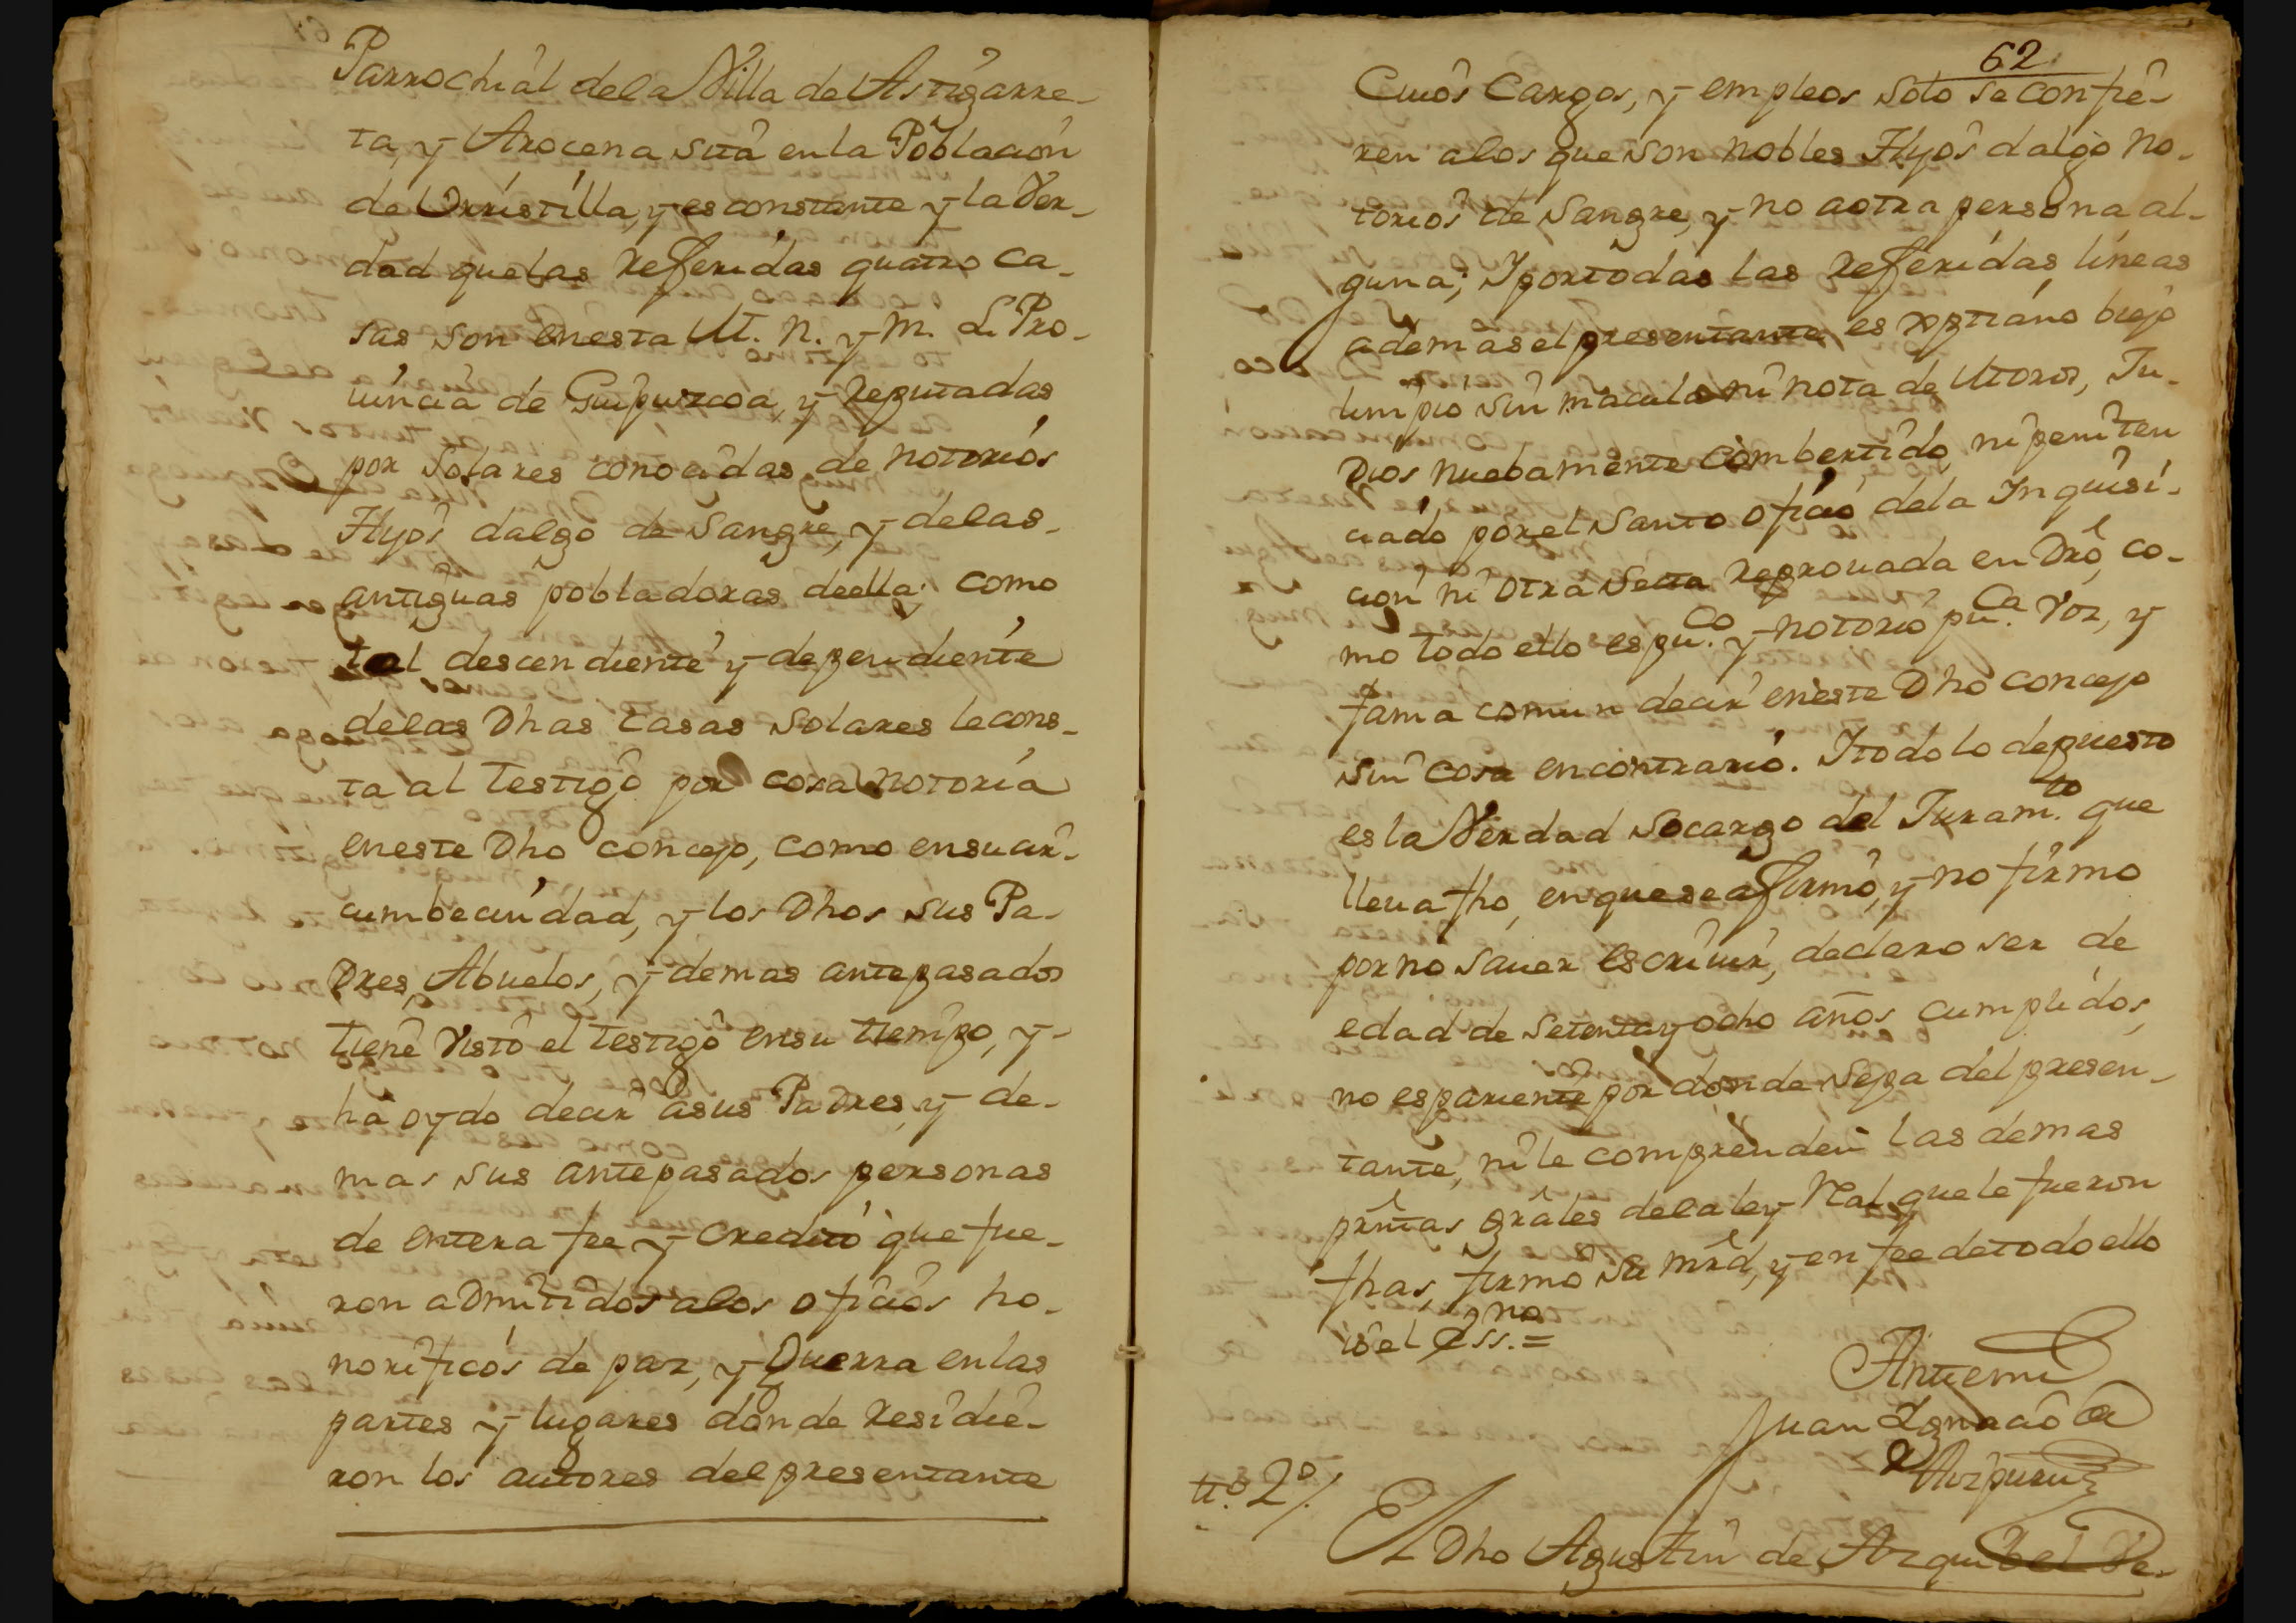 Parrochial dela Villa de Astigarre-
ta, y Arocena sita en la Poblacion
de Urristilla, y es constante y la Ver-
dad que las Referidas quatro ca-
sas son en esta M. N. y M. L. Pro-
uincia de Guipuzcoa, y Reputadas
por Solares conocidas de notorios
Hijos dalgo de Sangre, y delas
antiguas pobladoras de ella; como
tal descendiente y dependiente
delas Dhas Casas Solares le cons-
ta al testigo por cosa notoria
en este Dho concejo, como en su cir-
cumbecindad, y los Dhos sus Pa-
dres, Abuelos, y demas antepasados
tiene visto el testigo en su tiempo, y
ha oydo decir a sus Padres, y de-
mas sus antepasados personas
de entera fee y Credito que fue-
ron admitidos alos oficios ho-
norificos de paz, y Guerra en las
partes y lugares donde Residie-
ron los autores del presentante
62
Cuios Cargos, y empleos solo se confie-
ren alos que son nobles Hijos dalgo no-
torios de Sangre, y no a otra persona al-
guna; I por todas las Referidas lineas
ademas el presentante es xptiano biejo
limpio sin macula ni nota de Moros, Ju-
dios nuebamente combertido, ni peniten
ciado por el Santo oficio dela Inquisi-
cion ni otra Secta Reprouada en Dro, co-
mo todo ello es pu.co y notorio pu.ca voz, y
fama comun decir en este Dho concejo
sin cosa en contrario. I todo lo depuesto
es la Verdad socargo del Juram.to que
lleua fho, en que se afirmó, y no firmo
por no sauer escriuir, declaro ser de
edad de setenta y ocho años cumplidos,
no es pariente por donde sepa del presen-
tante, ni le comprenden las demas
prntas grales dela ley Real que le fueron
fhas, firmó su mrd, y en fee de todo ello
io el ess.no =
Antemi
Juan Ignacio de
Azpuru
tt.º 2º /.
El Dho Agustin de Azquibel Ve-